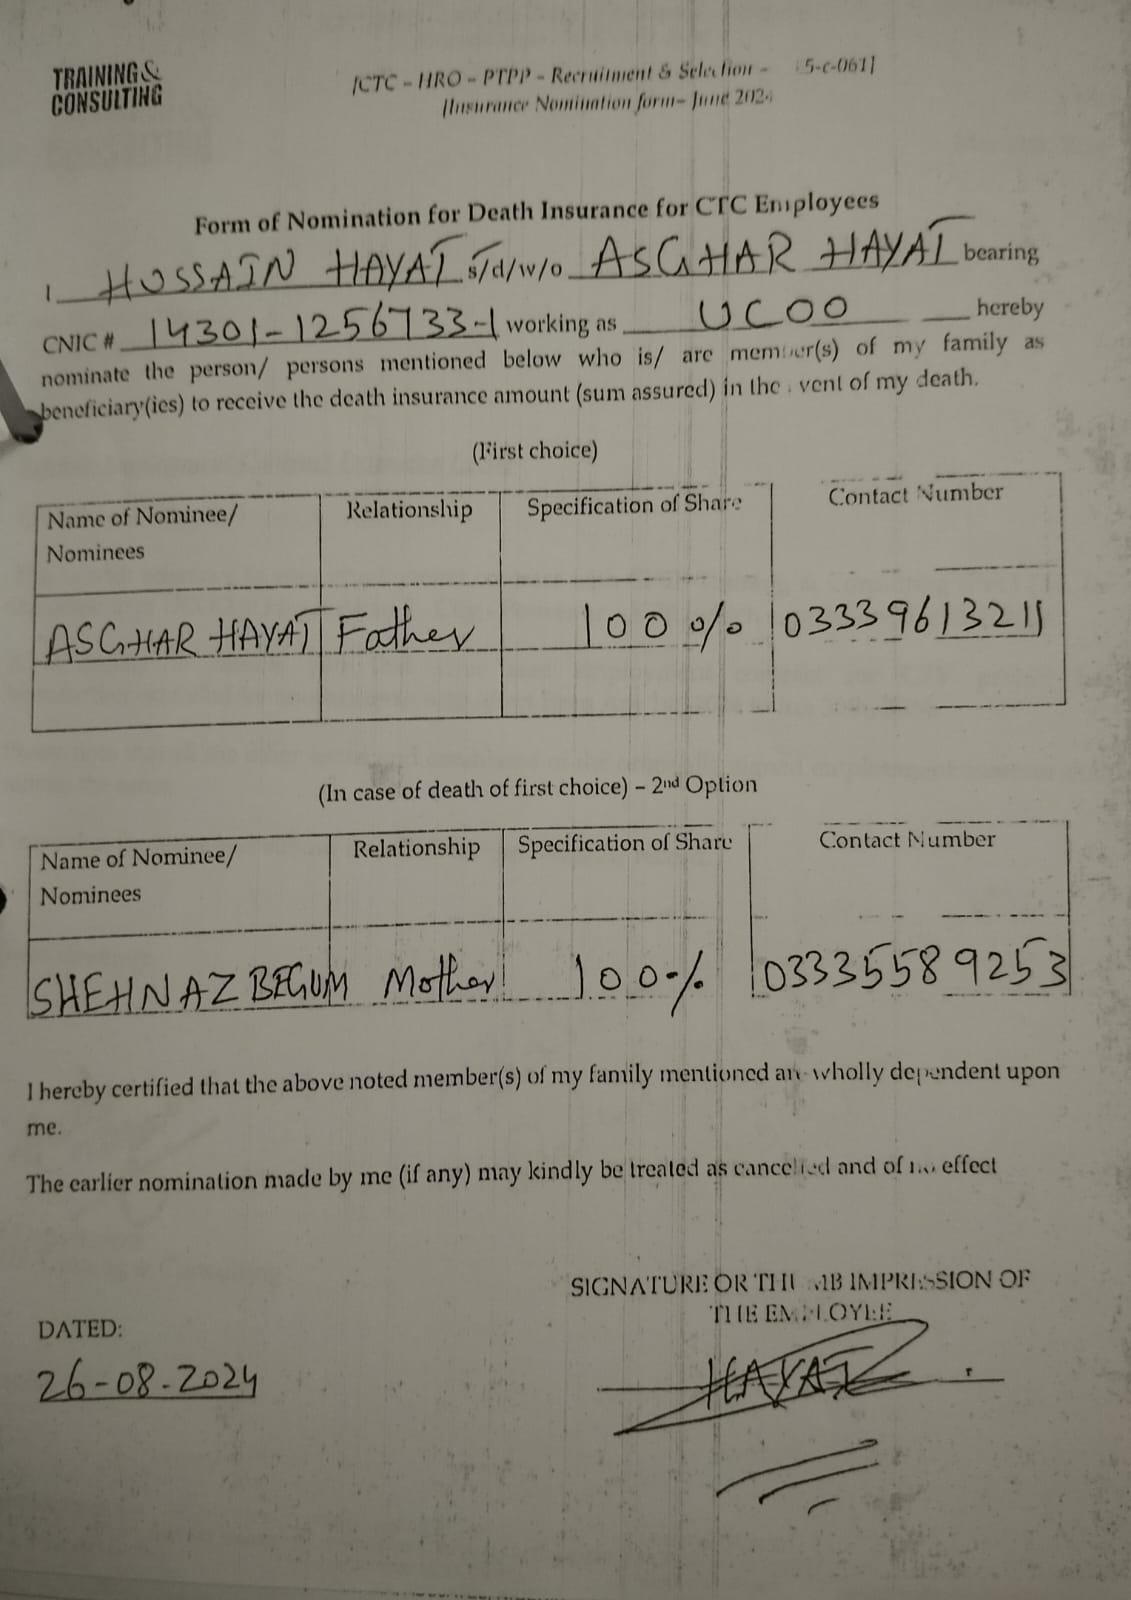 TRAINING &
CONSULTING
[CTC – HRO – PTPP – Recruitment & Selection – 5-c-061]
[Insurance Nomination form– June 2024
Form of Nomination for Death Insurance for CTC Employees
I HUSSAIN HAYAT s/d/w/o ASGHAR HAYAT bearing
CNIC # 14301-1256733-1 working as UCOO hereby
nominate the person/ persons mentioned below who is/ are member(s) of my family as
beneficiary(ies) to receive the death insurance amount (sum assured) in the event of my death.
(First choice)
Name of Nominee/ Relationship Specification of Share Contact Number
Nominees
ASGHAR HAYAT Father 100% 03339613211
(In case of death of first choice) – 2nd Option
Name of Nominee/ Relationship Specification of Share Contact Number
Nominees
SHEHNAZ BEGUM Mother 100% 03335589253
I hereby certified that the above noted member(s) of my family mentioned are wholly dependent upon
me.
The earlier nomination made by me (if any) may kindly be treated as cancelled and of no effect
SIGNATURE OR THUMB IMPRESSION OF
THE EMPLOYEE
DATED:
26-08-2024
HAYAT